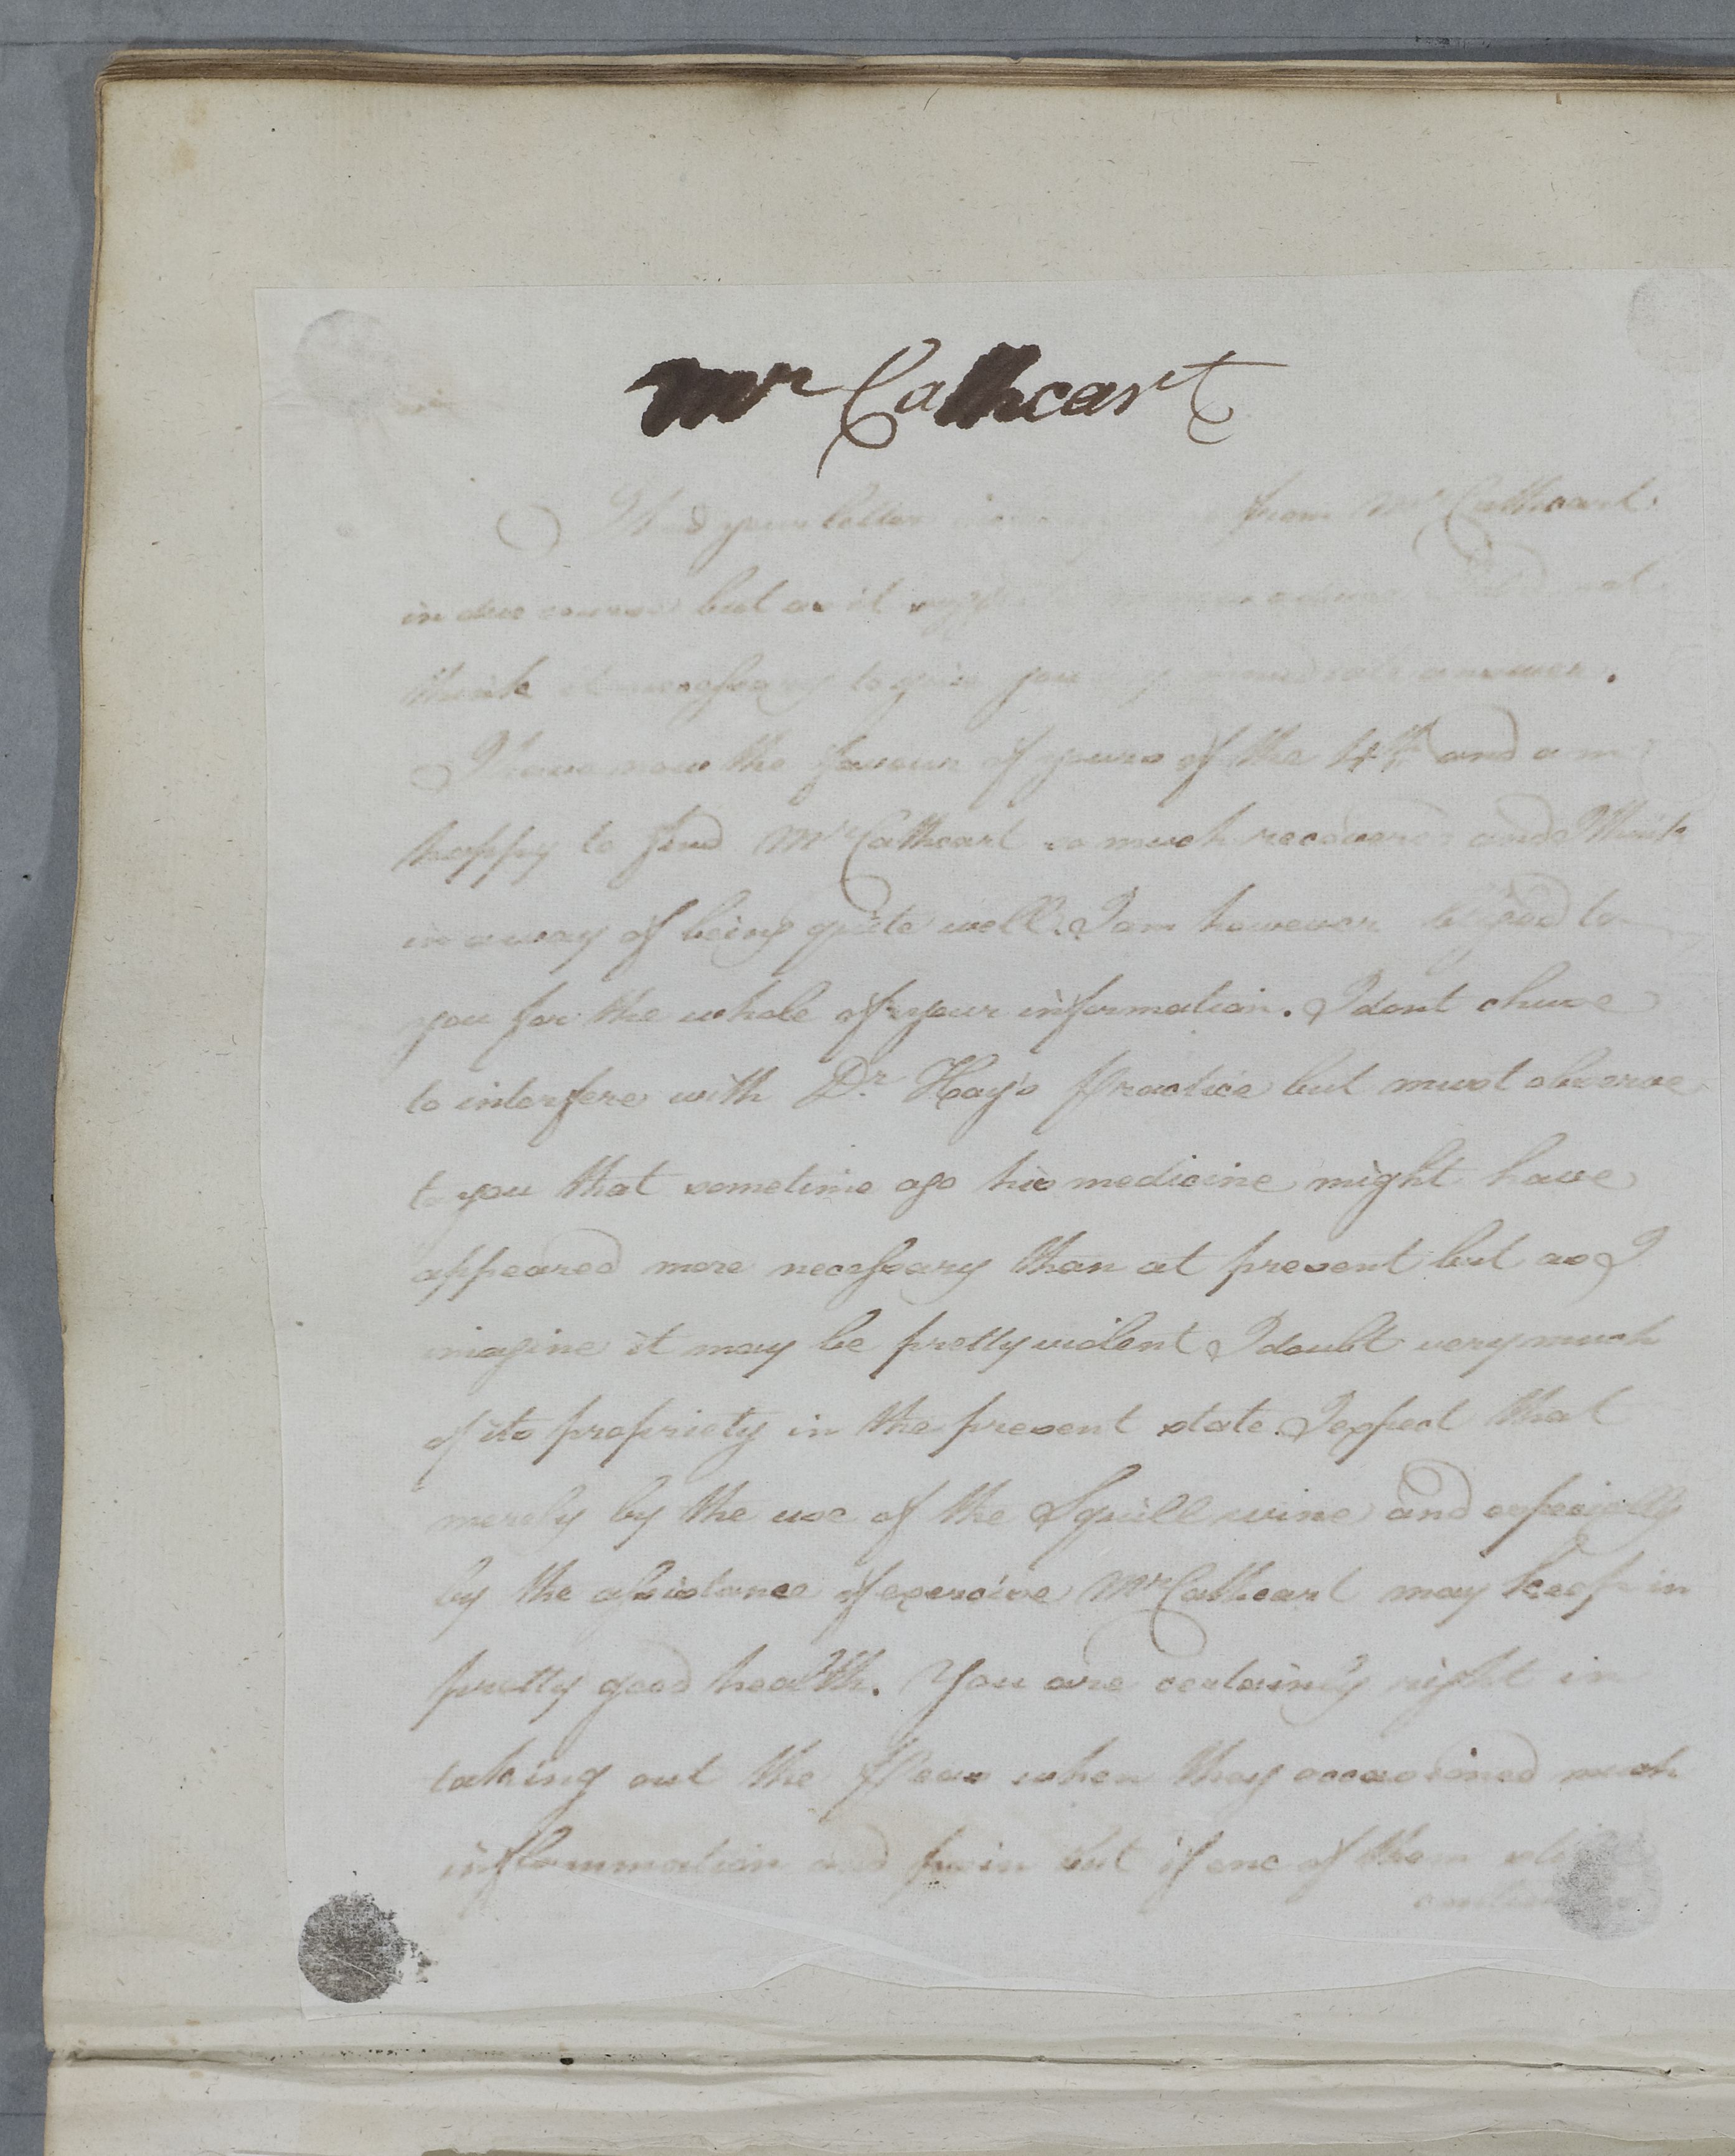 Mr Cathcart
I had your letter from Mr Cathcart
in due course but as it not
think it necessary to give you any immediate answer.
I have now the favour of yours of the 4th and am
happy to find Mr Cathcart so much recovered and I think
in a way of being quite well. I am however obliged to
you for the whole of your information. I dont chuse
to interfere with Dr. Hay's Practice but must observe
to you that sometime ago his medicine might have
appeared more necessary than at present but as I
imagine it may be pretty violent I doubt very much
of its propriety in the present state. I expect that
merely by the use of the Squill wine and especially
by the assistance of exercise Mr Cathcart may keep in
pretty good health. You are certainly right in
taking out the Peas when they occasioned much
inflammation and pain but if one of them